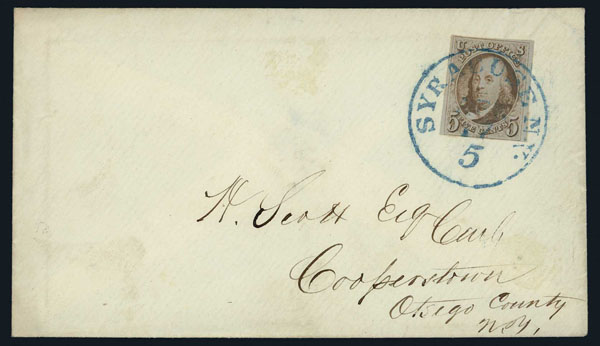 U S
POST OFFICE
5 FIVE CENTS 5
SYRACUSE N.Y.
5
H. Scott Esq
Cooperstown
Otsego County
N.Y.